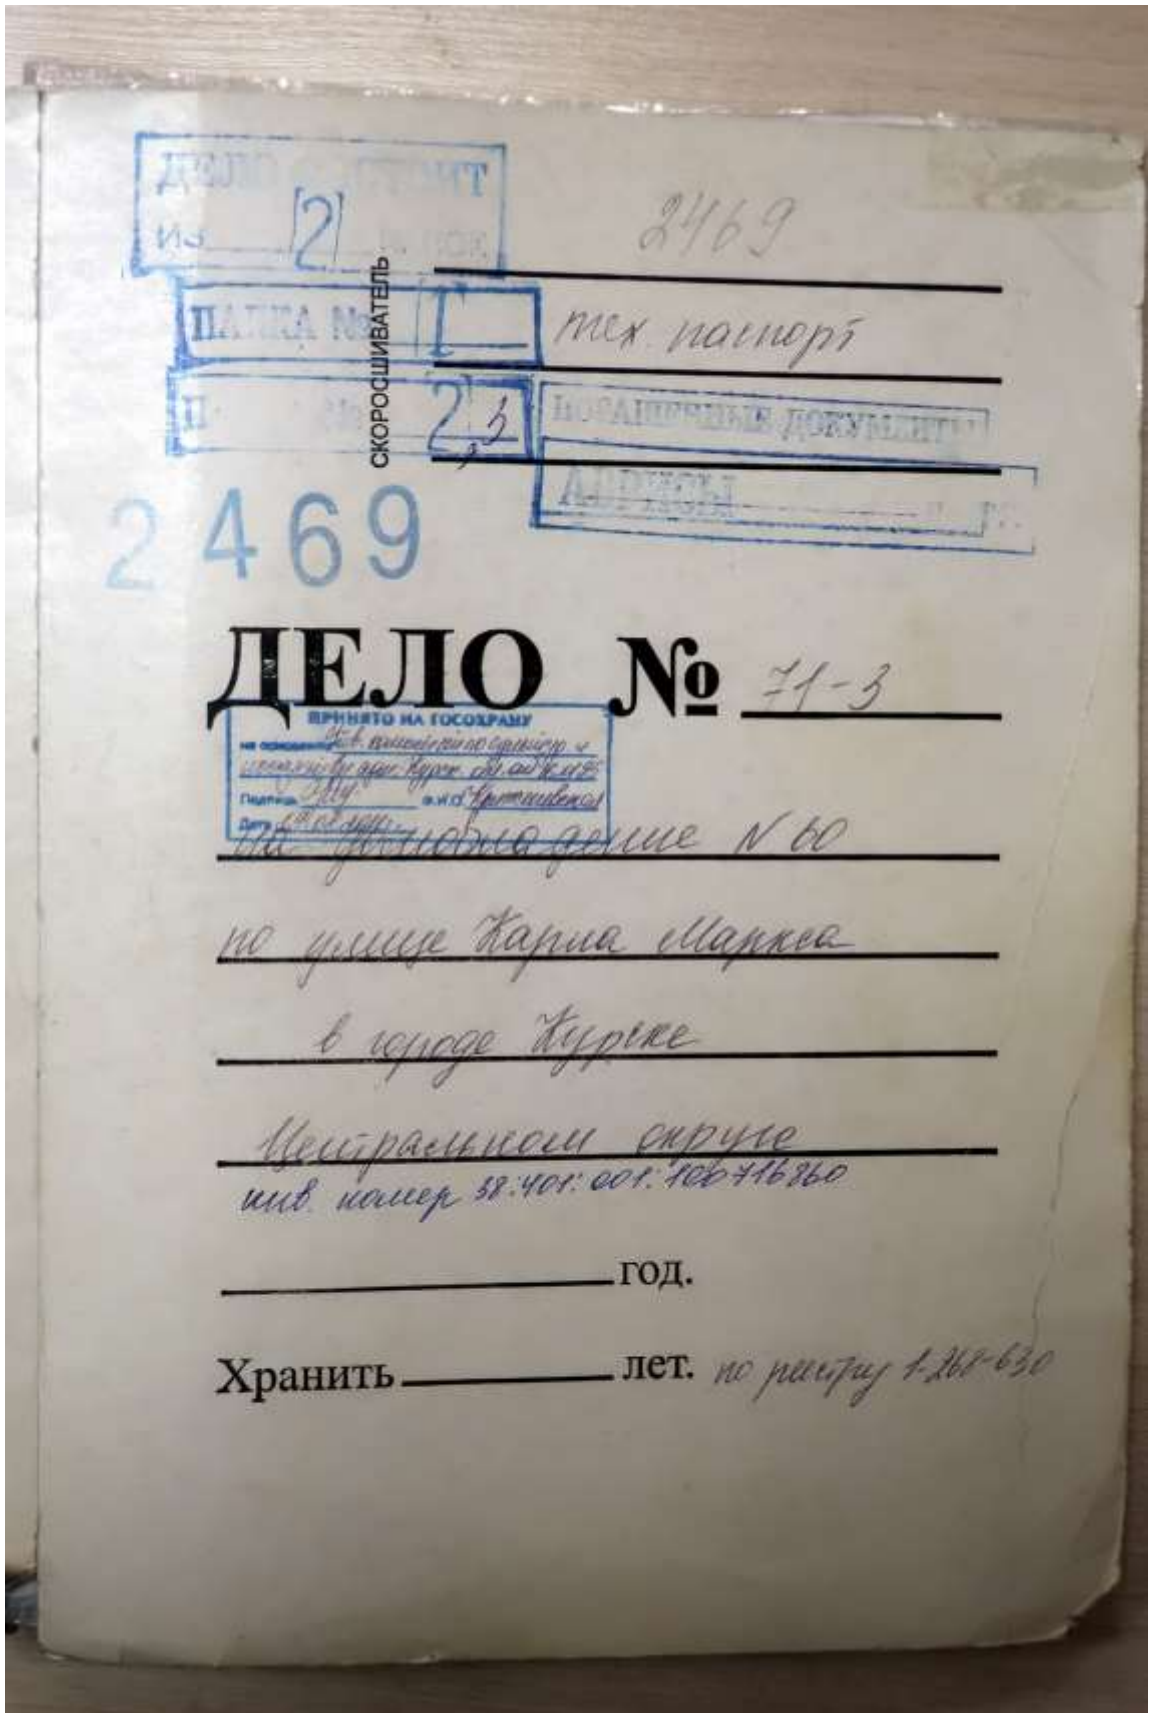 ДЕЛО СОСТОИТ
ИЗ 2 ПАПОК
2469
ПАПКА № 1
тех. паспорт
СКОРОСШИВАТЕЛЬ
№ 2,3
ПОГАШЕННЫЕ ДОКУМЕНТЫ
АБРИСЫ
2469
ДЕЛО № 71-3
ПРИНЯТО НА ГОСОХРАНУ
на основании
Подпись Ф.И.О.
Дата
на домовладение № 60
по улице Карла Маркса
в городе Курске
Центральном округе
инв. номер 38:401:001:100716860
год.
Хранить лет. по реестру 1-268-630